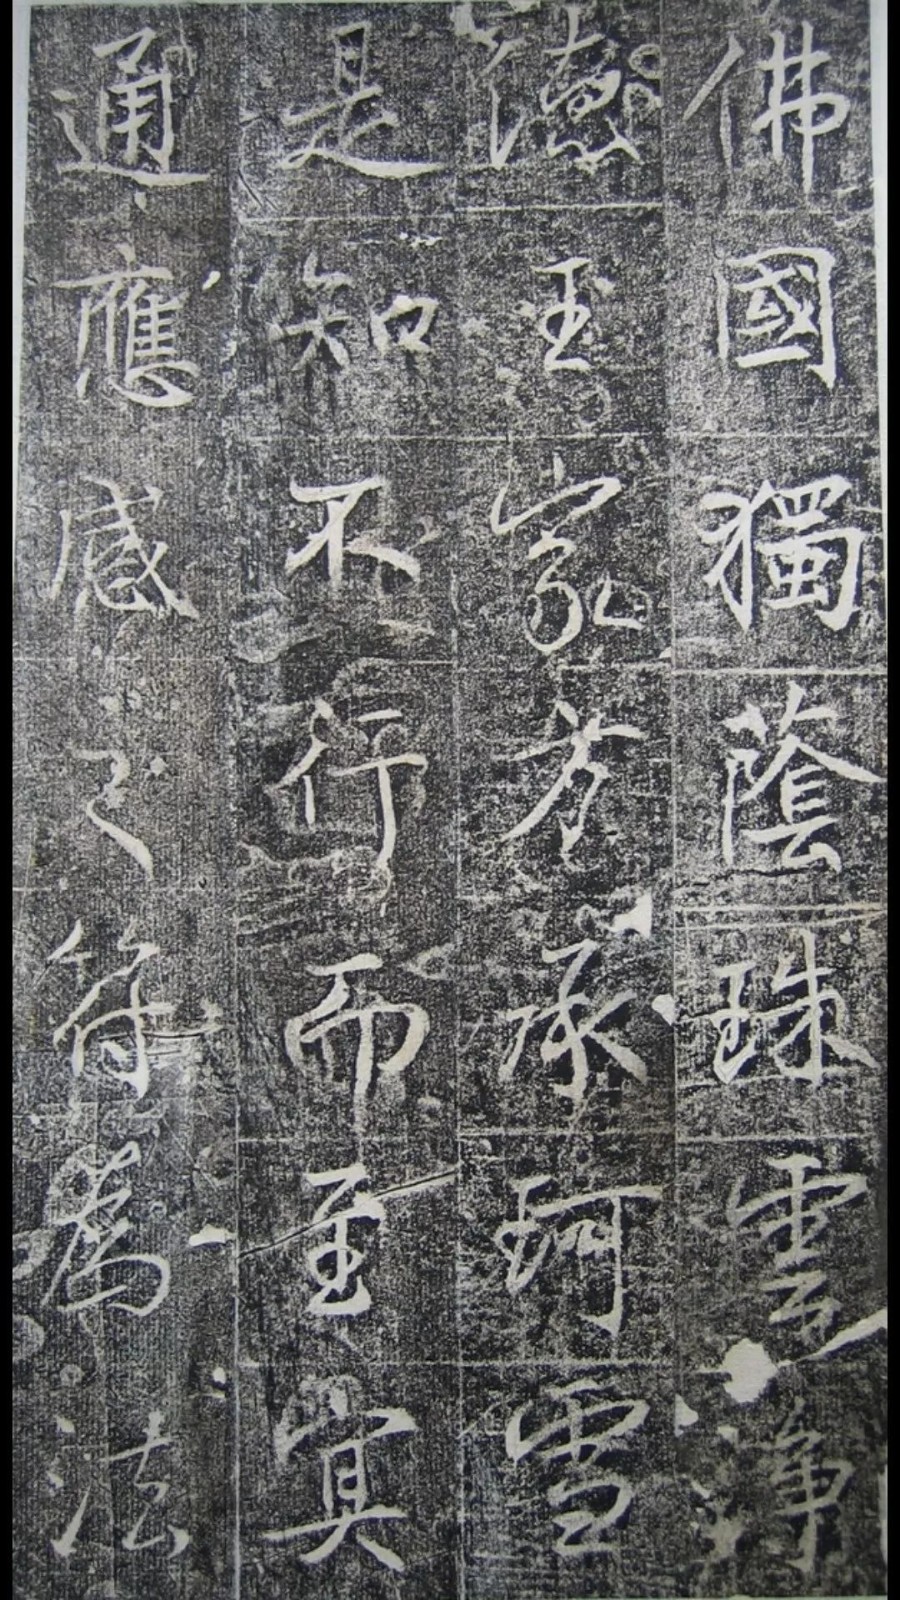 佛國獨蔭珠雲淨
德王家方承珂雪
是知不行而至寘
通應感之符爲法